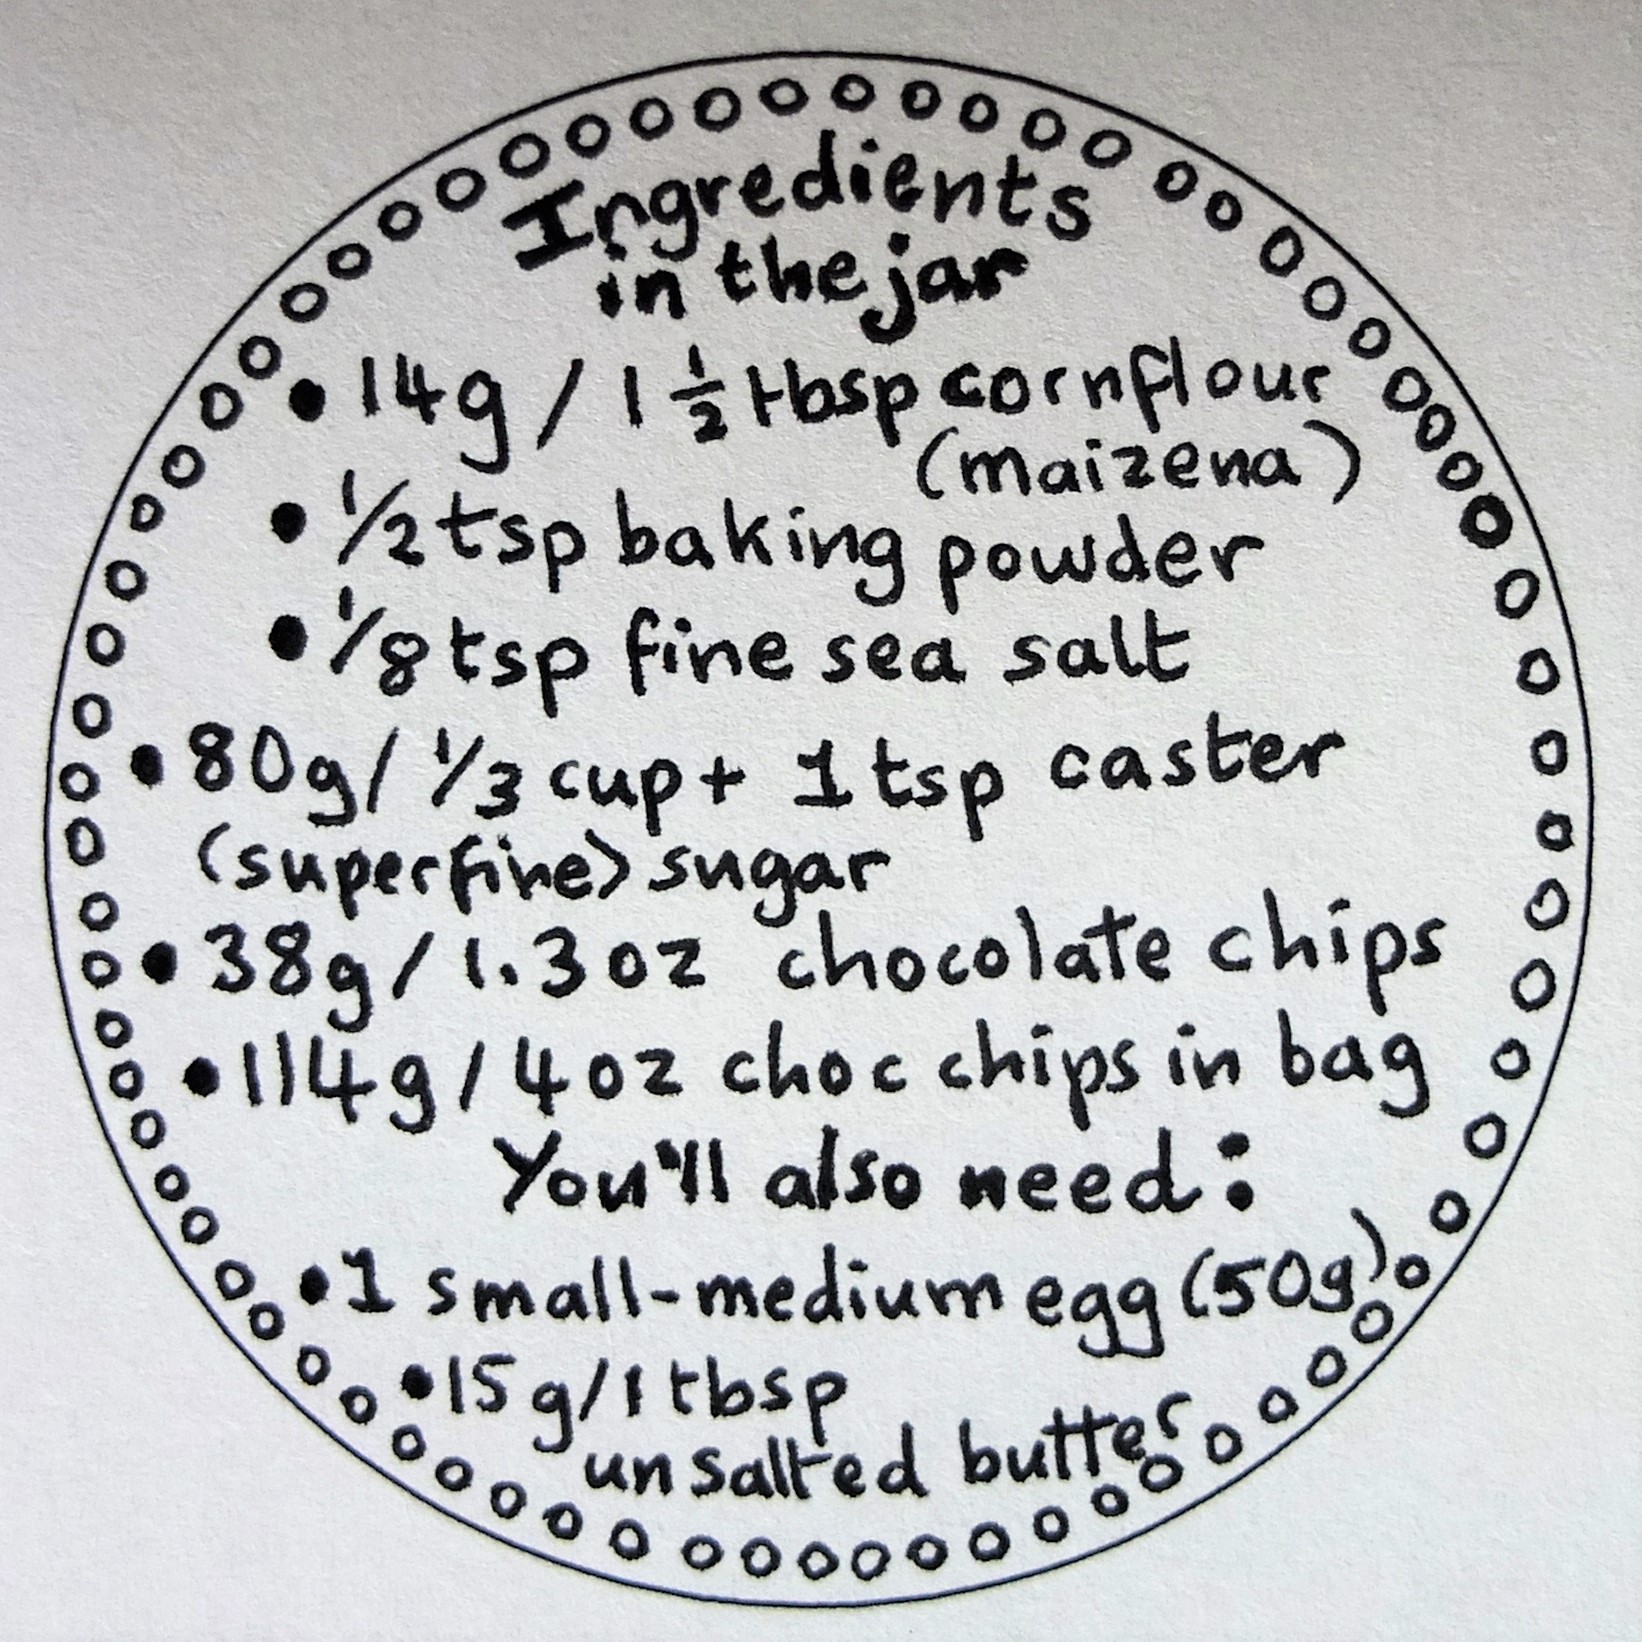 Ingredients
in the jar
• 14g / 1 1/2 tbsp cornflour
(maizena)
• 1/2 tsp baking powder
• 1/8 tsp fine sea salt
• 80g / 1/3 cup + 1 tsp caster
(superfine) sugar
• 38g / 1.3oz chocolate chips
• 114g / 4oz choc chips in bag
You'll also need:
• 1 small-medium egg (50g)
• 15g / 1 tbsp
unsalted butter